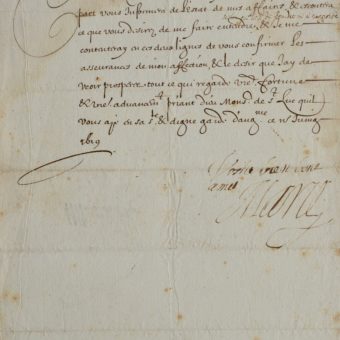 part vous Informera de l'estat de mes affaires, & entendra
ce que vous desirez de me faire entendre, & Je me
contanteray en ces deux lignes de vous confirmer les
asseurances de mon affection & le desir que Jay de
veoir prosperer tout ce qui regarde vre fortune
& vre advancemt priant dieu Mons. de st Luc quil
vous ayt en sa ste & digne garde dang
1619
vostre bien bonne
amie
Marie